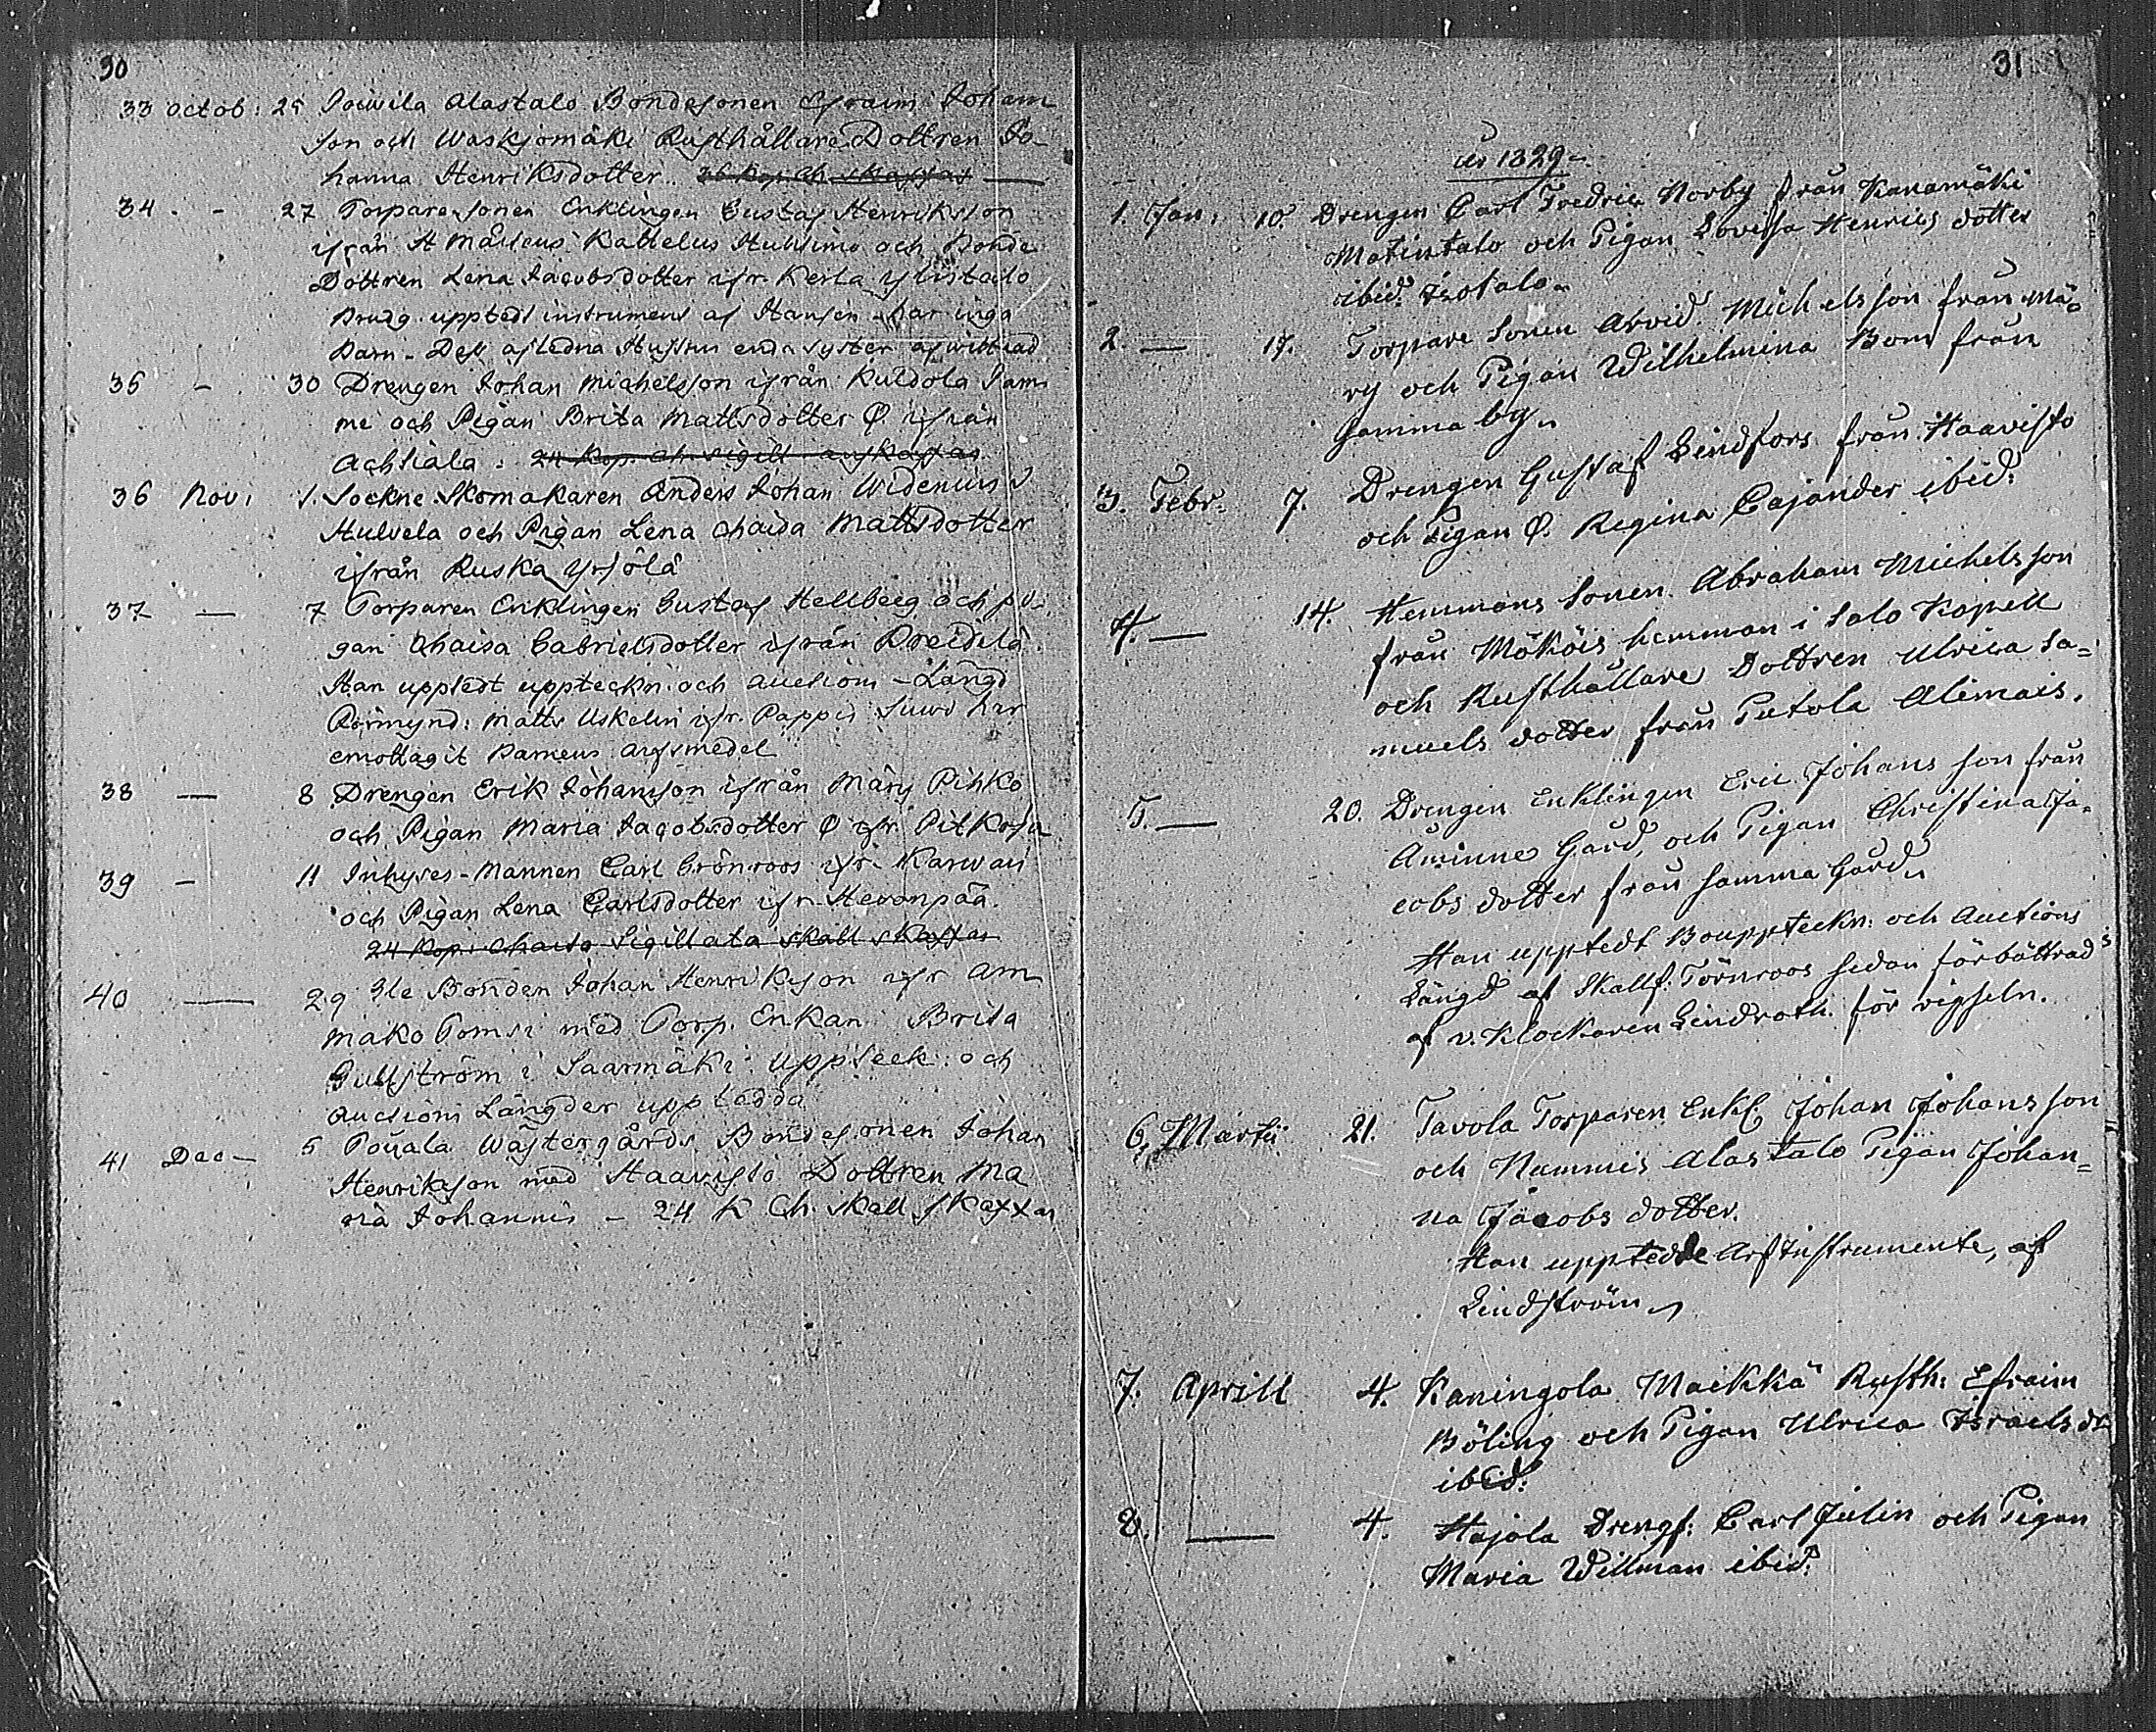 30
33 Octob: 25 Jauvila Alastalo Bondesonen Efraim Johan
son och Waskjomäki Rusthållare Dottren Jo-
hanna Henriksdotter.
34 - 27 Torparesonen Enklingen Gustaf Henriksson
ifrån och Bonde
Dottren Lena Jacobsdotter ifr. Kerla Ylistalo
upptedt instrument af Hansen har inga
Barn - Des afledna Hustrus enda syster
35 - 30 Drengen Johan Michelsson ifrån Kuldola Tam
mi och Pigan Brita Mattsdotter Ø ifrån
Achtiala.
36 Nov: 1. Sockne Skomakaren Anders Johan Widenius i
Hulvela och Pigan Lena Chaisa Mattsdotter
ifrån Ruska Yrjölä
37 — 7 Torparen Enklingen Gustaf Hellberg och pi-
gan Chaisa Gabrielsdotter ifrån Preidilä
Han upptedt uppteckn. och Auctions-Längd
Förmynd: Matts Uskelin ifr. Pappis Suvo har
emottagit Barnens arfsmedel
38 — 8 Drengen Erik Johansson ifrån Märy Pihko
och Pigan Maria Jacobsdotter Ø ifr.
39 - 11 Inhyses-Mannen Carl Grönroos ifr. Karwais
och Pigan Lena Carlsdotter ifr. Hevonpää.
24 Kop: Charta Sigillata skall skaffas
40 — 29 Bonden Johan Henriksson ifr Am
mako Tomsi med Torp. Enkan Brita
Gullström i Saarmäki uppteck: och
Auctions Längder uppledda
41 Dec — 5 Wästergårds Bondesonen Johan
Henriksson med Haavisto Dottren Ma
ria Johannis - 24 K Ch. skall skaffas
31
År 1829.
1. Jan: 10. Drengen Carl Fredric Norby från Kanamäki
Matintalo och Pigan Lovisa Henrics dotter
ibid: Isotalo.
2. — 17. Torpare Sonen Arvid Michelsson från Mä-
ry och Pigan Wilhelmina Bom från
samma by.
3. Febr. 7. Drengen Gustaf Lindfors från Haavisto
och Pigan Ø. Regina Cajander ibid:
4. — 14. Hemmans Sonen Abraham Michelsson
från Mököis hemman i Salo Kapell
och Rusthållare Dottren Ulrica Sa=
muels dotter från Putola Alimais.
5. — 20. Drengen Enklingen Eric Johans son från
Åminne Gård, och Pigan Christina Ja=
cobs dotter från samma Gård.
Han upptedt Bouppteckn: och Auctions
Längd af Skallf. Törnroos sedan förbättrad
af v. Klockaren Lindroth för vigseln.
6. Martii 21. Tavola Torparen Enkl. Johan Johansson
och Nummis Alastalo Pigan Johan=
na Jacobs dotter.
Han upptedde Arfsinstrumente, af
Lindström
7. Aprill 4. Kaningola Maikkä Rusth: Efraim
Böling och Pigan Ulrica Israels dr
ibid:
8. — 4. Hajola Drengf: Carl Julin och Pigan
Maria Willman ibid: